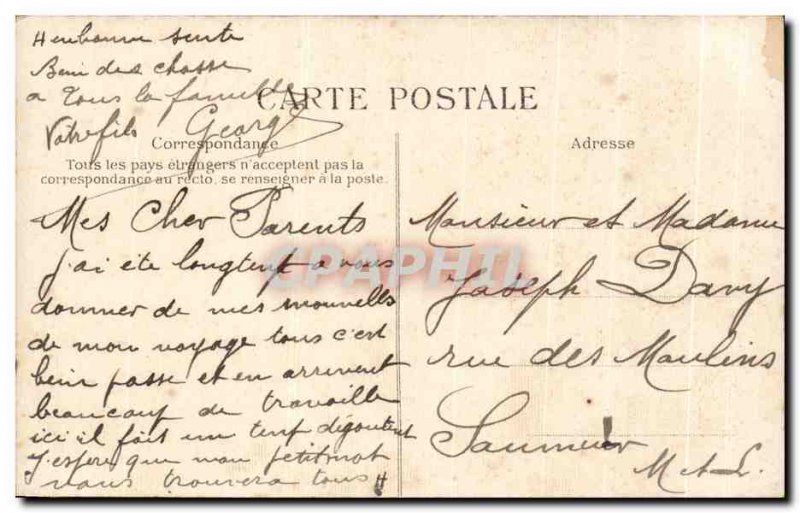 CARTE POSTALE
Correspondance
Tous les pays étrangers n'acceptent pas la
correspondance au recto, se renseigner à la poste.
Adresse
Mes Cher Parents
j'ai éte longtent a vous
donner de mes nouvells
de mon voyage tous c'est
bein passe et en arrivent
beaucoup de travaille
ici il fait un temp dégoutent
J'espere que mon petit mot
vous trouvera tous #
# en bonne sente
Bien des chosse
a Tous la famille
Votre fils George
Monsieur et Madame
Joseph Davy
rue des Moulins
Saumur
M et L.
CPAPHIL